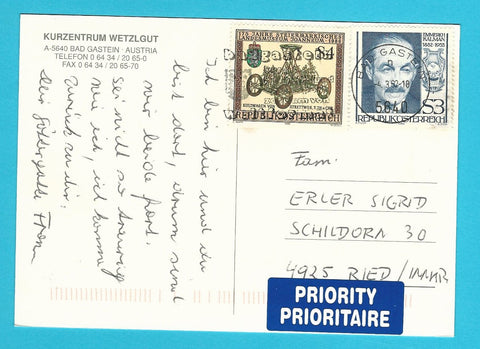 KURZENTRUM WETZLGUT
A-5640 BAD GASTEIN · AUSTRIA
TELEFON 0 64 34 / 20 65-0
FAX 0 64 34 / 20 65-70
Ich bin hier und du
bist dort, drum sind
wir beide fort.
Sei nicht so traurig
wie ich, ich komme
zurück zu dir.
Dein Göttergatte Franz
175 JAHRE STEIERMÄRKISCHES
LANDESMUSEUM JOANNEUM · 1986
S4
REPUBLIK ÖSTERREICH
EMMERICH
KALMAN
1882-1953
S3
REPUBLIK ÖSTERREICH
BAD GASTEIN
5640
Fam.
ERLER SIGRID
SCHILDORN 30
4925 RIED/INNKR
PRIORITY
PRIORITAIRE